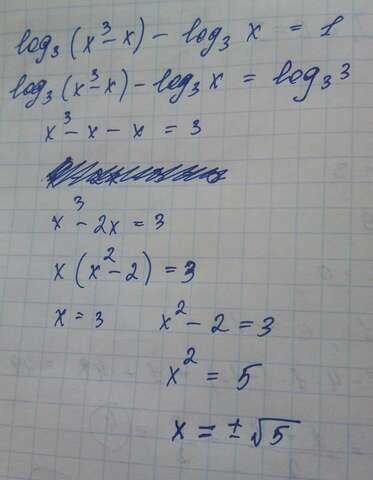 log₃(x³-x) - log₃ x = 1
log₃(x³-x) - log₃x = log₃3
x³-x-x = 3
x³-2x = 3
x(x²-2) = 3
x = 3 x²-2 = 3
x² = 5
x = ±√5